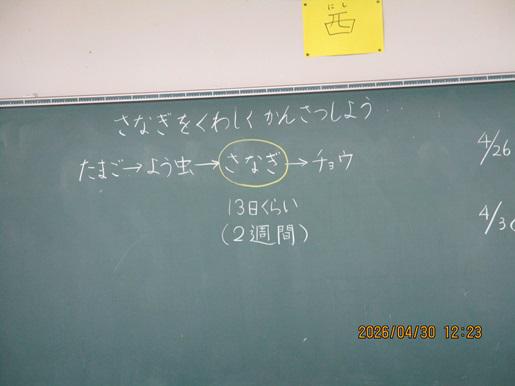 にし
西
さなぎをくわしくかんさつしよう
たまご→よう虫→さなぎ→チョウ
13日くらい
(2週間)
4/26
4/3
2026/04/30 12:23